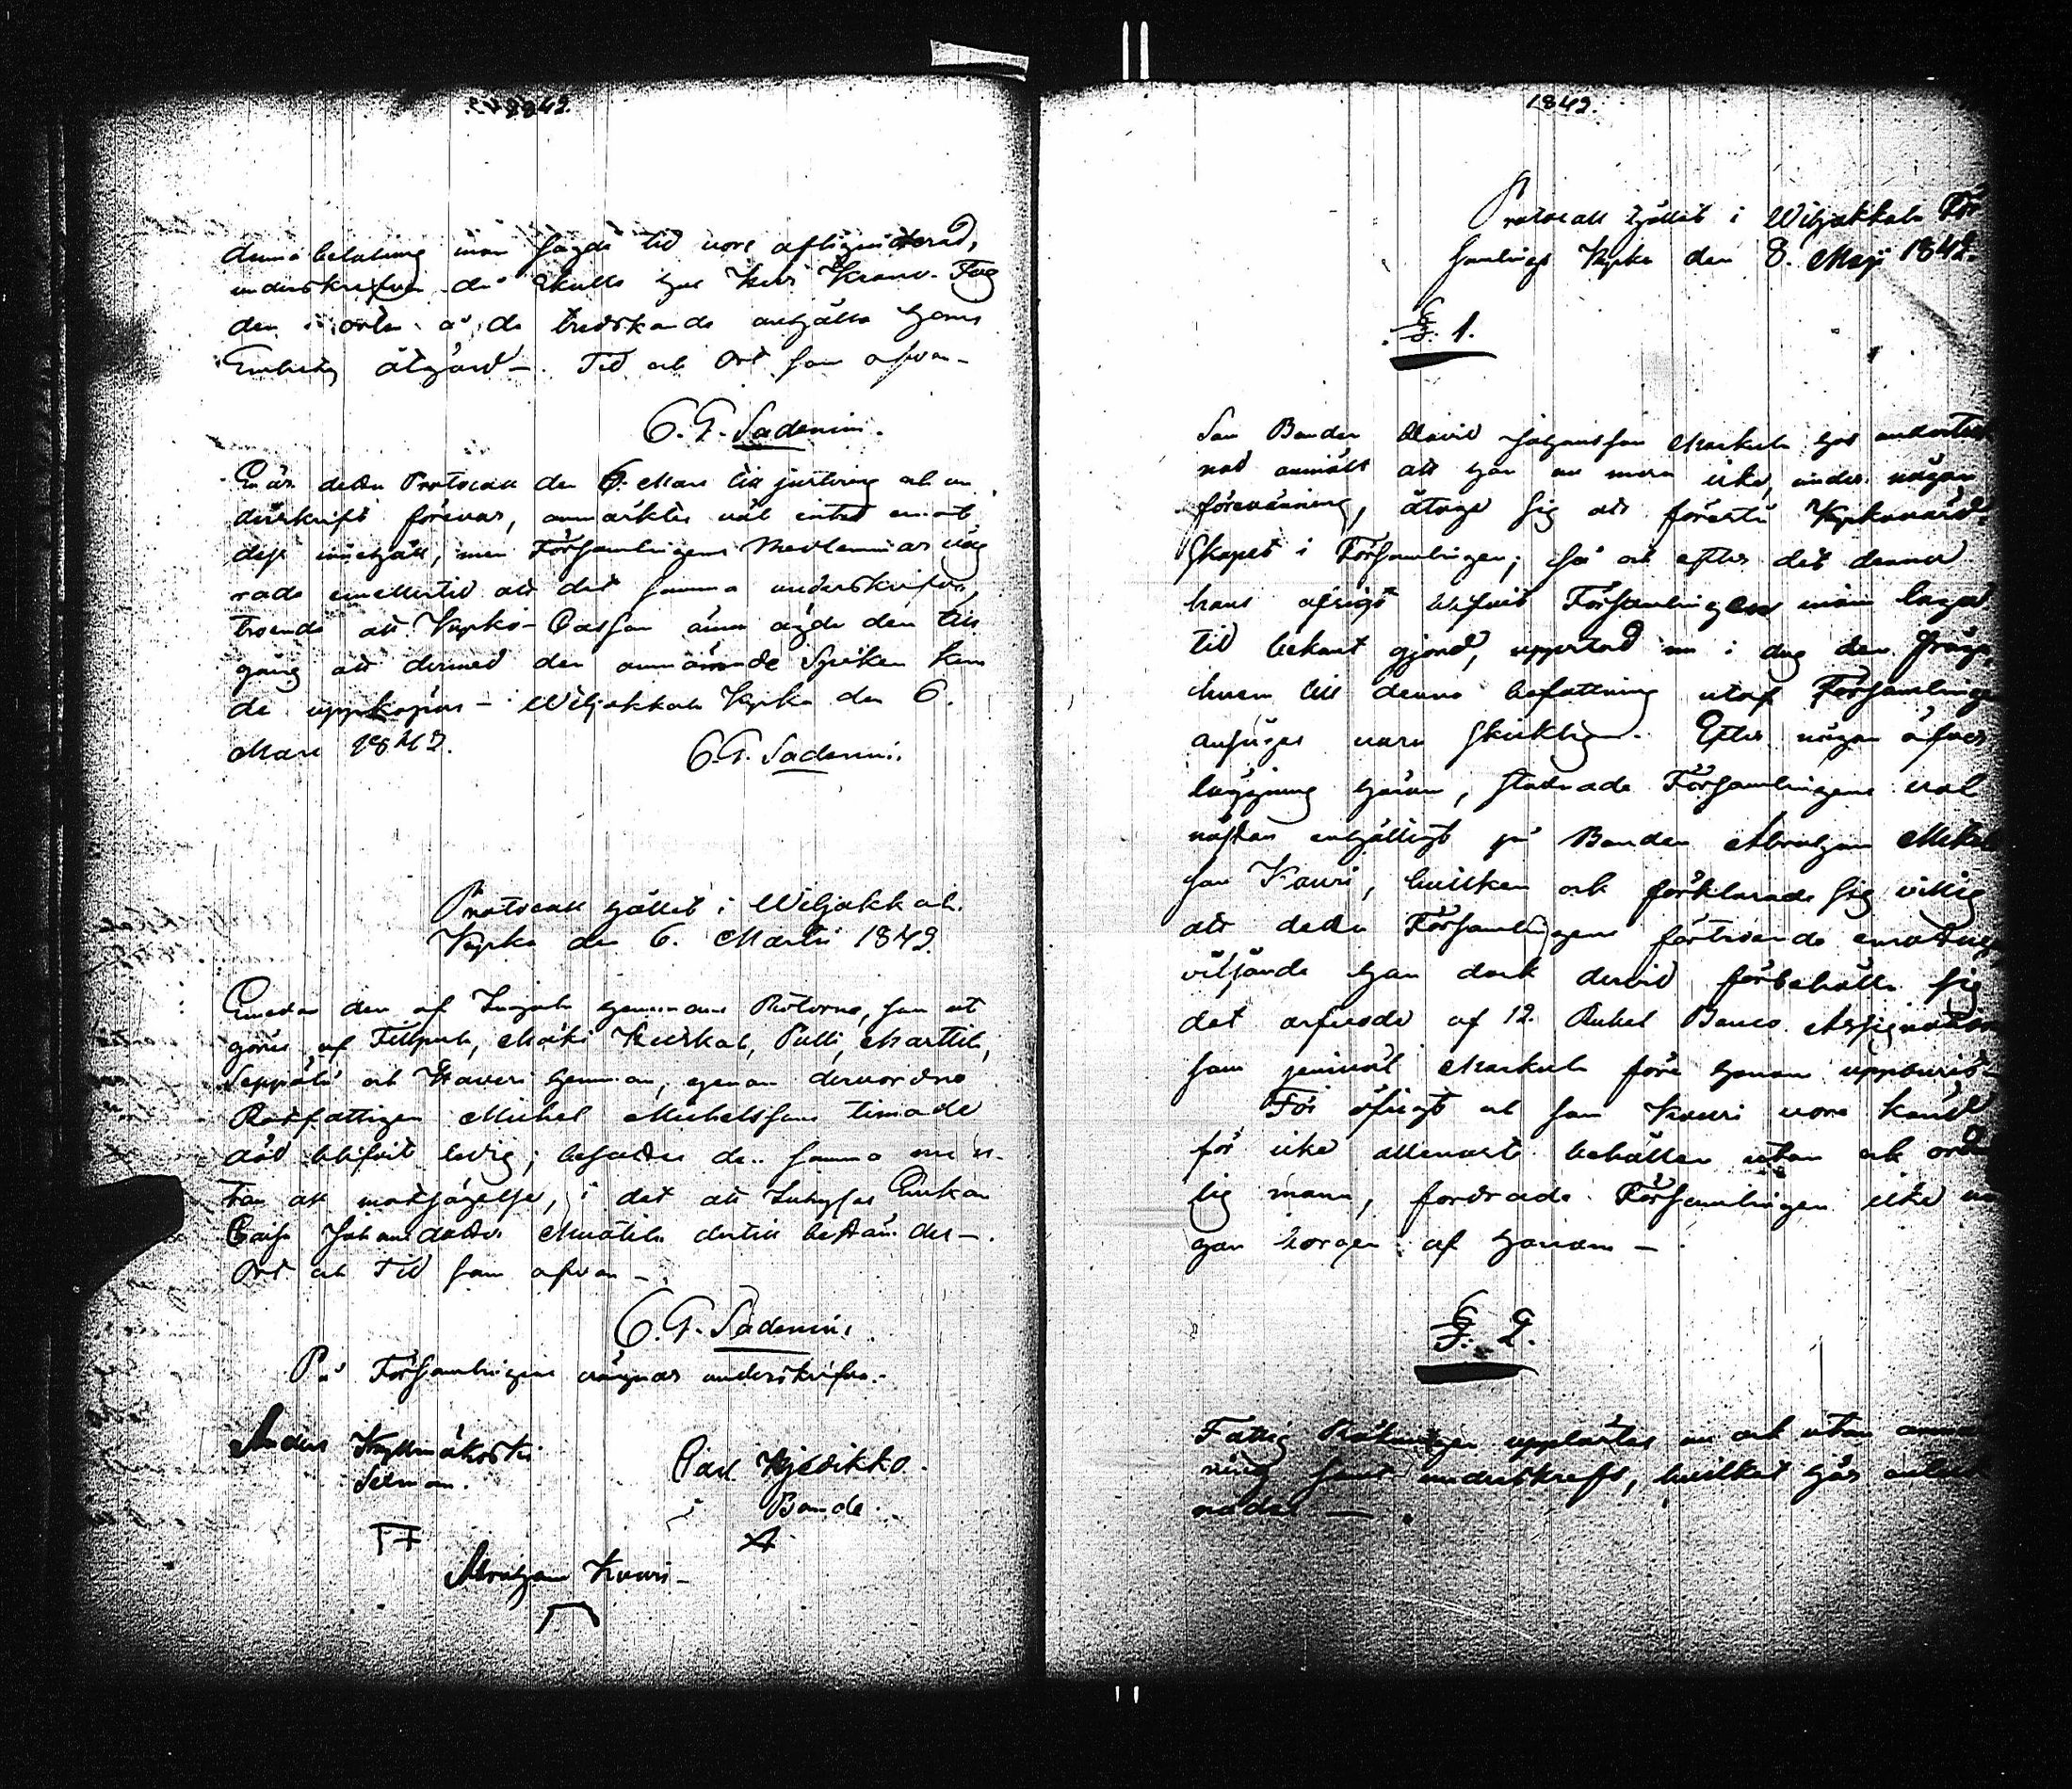 1842.
denna betalning inom sagde tid vore afligviderad,
underskrifven då skulle hos Herr Krono-Fog
den i orten å de tredskande anhålla hans
Embets åtgärd —. Tid och Ort som ofvan —
C. G. Sadenius.
Enär detta Protocoll den 6. Mars till justering och un
derskrift förevar, anmärktes väl intet emot
dess innehåll, men Församlingens Medlemmar väg
rade emellertid att det samma underskrifva,
troende att Kyrko-Cassan ännu ägde den till
gång att dermed den omnämnde Spiken kun
de uppköpas — Wiljakkala Kyrka den 6.
Mars 1842.
C. G. Sadenius.
Protocoll hållet i Wiljakkala
Kyrka den 6. Martii 1842.
Emedan den af hemman Rotorne, som ut
göres af Mäki Pulli, Marttila,
Seppälä och Haveri hemman, genom dervarande
Rotfattigen Michel Michelssons timade
död blifvit ledig; besattes den samma nu u-
tan att motsägelse, i det att Enkan
Caisa Johansdotter dertill bestämdes —.
Ort och Tid som ofvan —.
C. G. Sadenius
På Församlingens vägnar underskrifva.
Anders Kyllmäkoski
Carl
Bonde.
Abraham Kauri —
1842.
Protocoll hållet i Wiljakkala För
samlings Kyrka den 8. Maji 1842.
§. 1.
Som Bonden David Johansson Markula hos underteck
nad anmält att han nu mera icke, under någon
förevänning, åtager sig att förestå Kyrkovärd-
skapet i Församlingen; så och efter det denna
hans afsigt blifvit Församlingen inom laga
tid bekant gjord, uppstod nu i dag den fråga,
hvem till denna befattning utaf Församlingen
ansåges vara skicklig. Efter någon öfver
läggning härom, stadnade Församlingens val
nästan enhälligt på Bonden Abraham Mikels
son Kauri, hvilken och förklarade sig villig
att detta Församlingens förtroende emottaga,
viljande han dock dervid förbehålla sig
det arfvode af 12. Rubel Banco Assignationer
som jemväl Markula före honom uppburit —
För öfrigt och som Kauri vore känd
för icke allenast behållen utan och orde
lig mann, fordrade Församlingen icke nå
gon borgen af honom —.
§. 2.
Fattig Räkningen upplästes nu och utan anmä
ning samt underskrefs, hvilket här anteck
nades —.